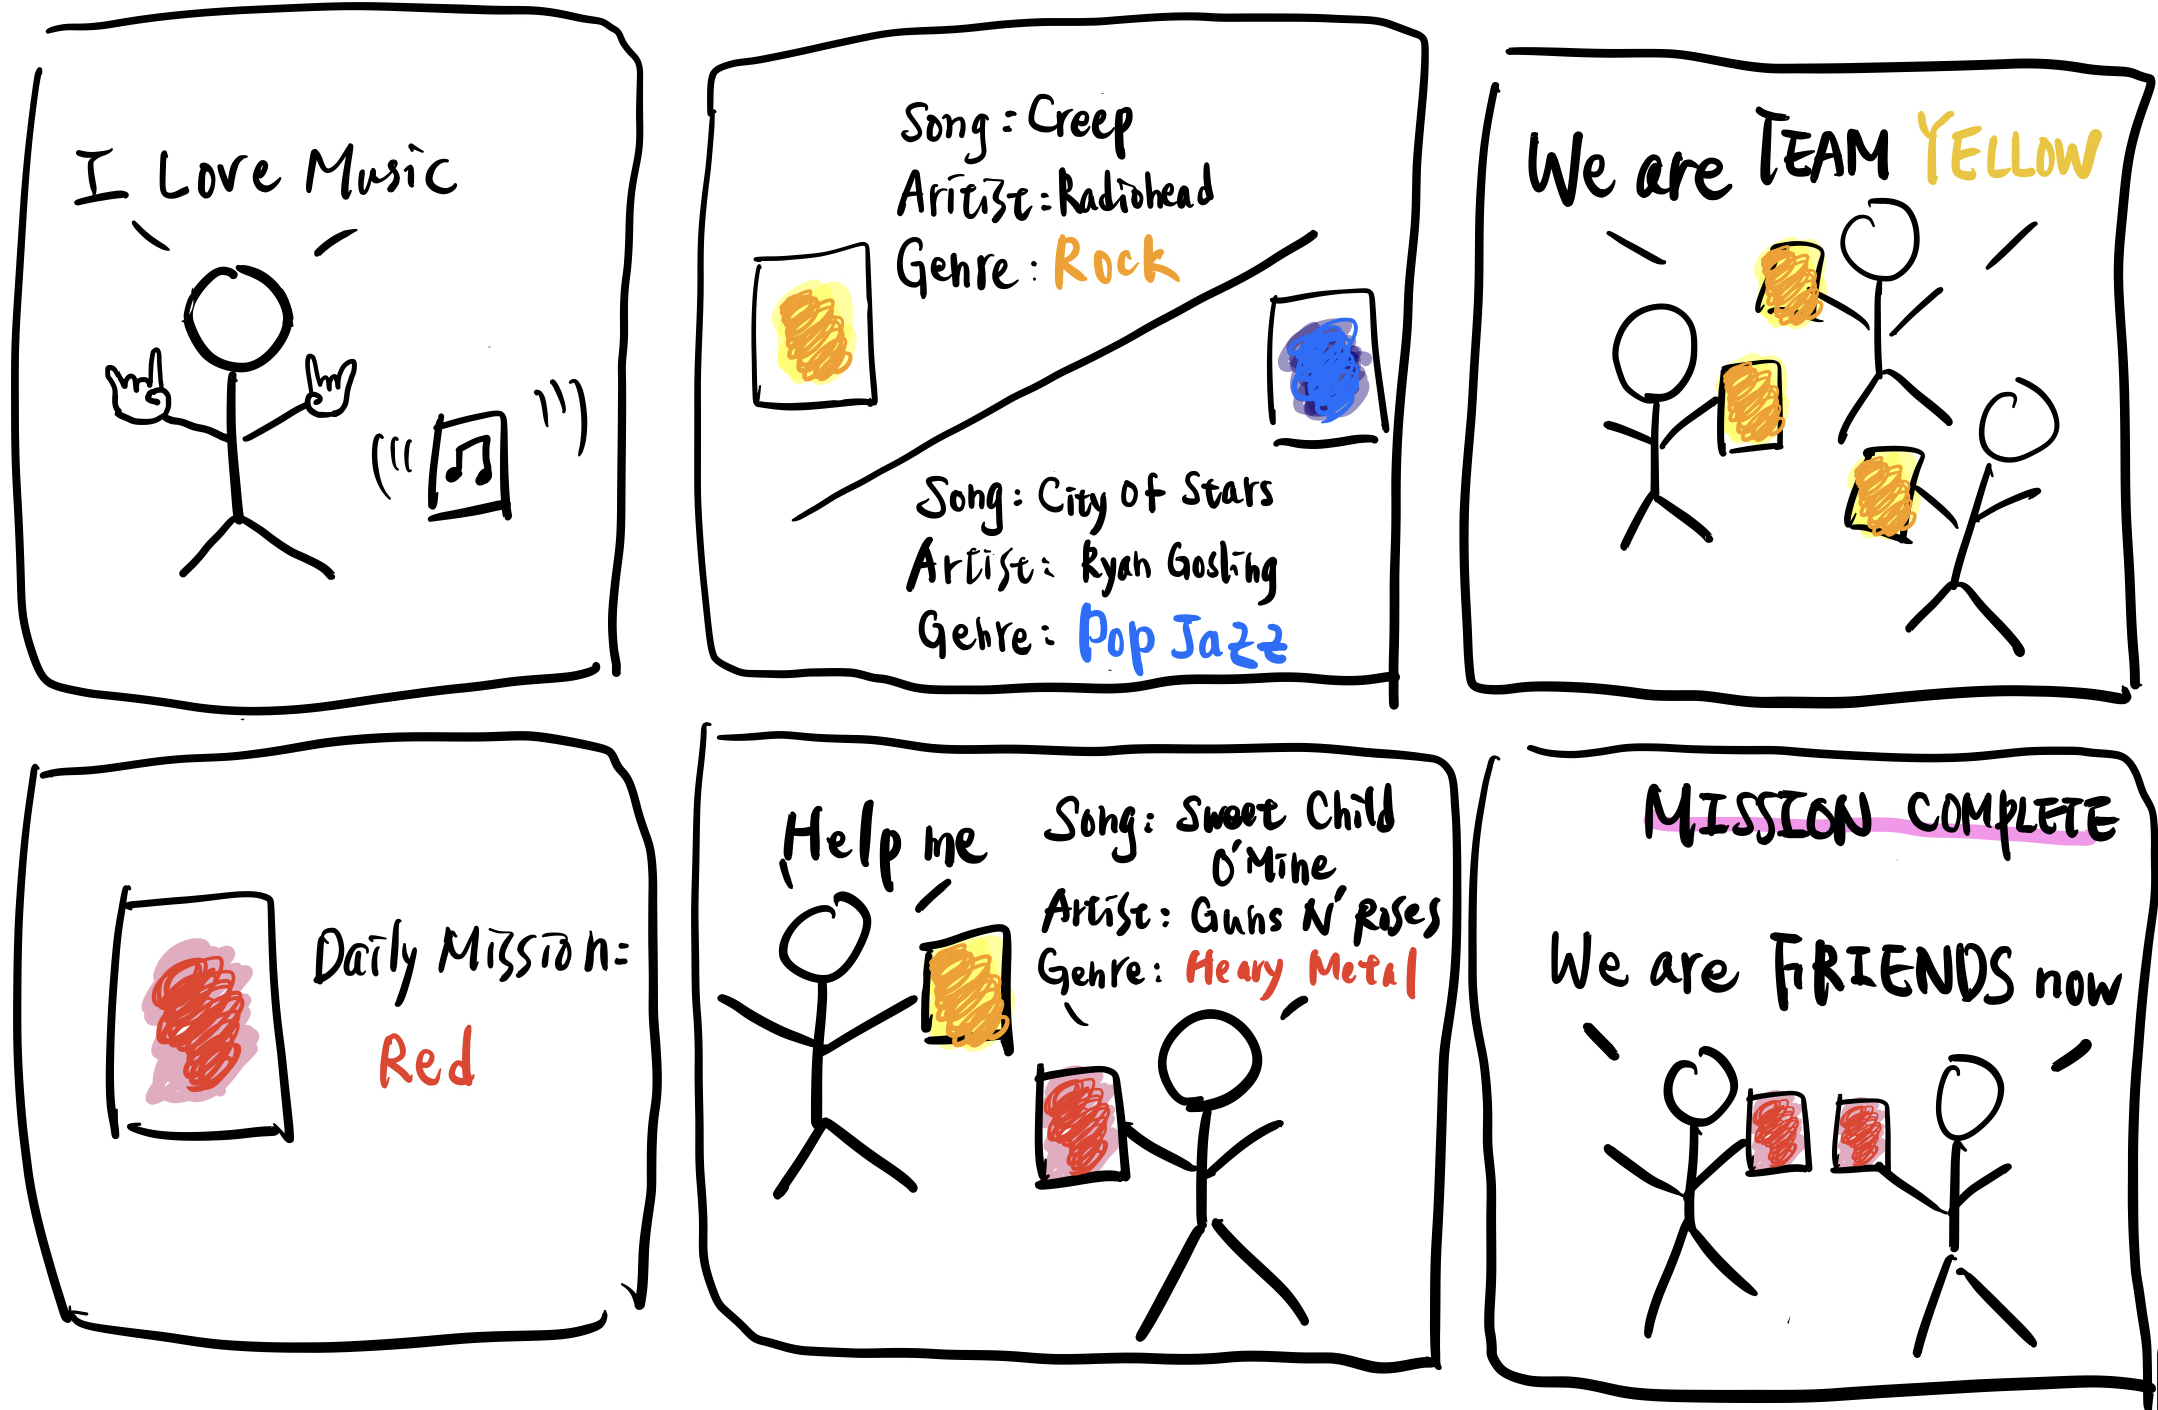 I Love Music
Song: Creep
Aritist: Radiohead
Genre: Rock
Song: City of Stars
Artist: Ryan Gosling
Genre: Pop Jazz
We are TEAM YELLOW
Daily Mission:
Red
Help me
Song: Sweet Child
O'Mine
Artist: Guns N' Roses
Genre: Heavy Metal
MISSION COMPLETE
We are FRIENDS now